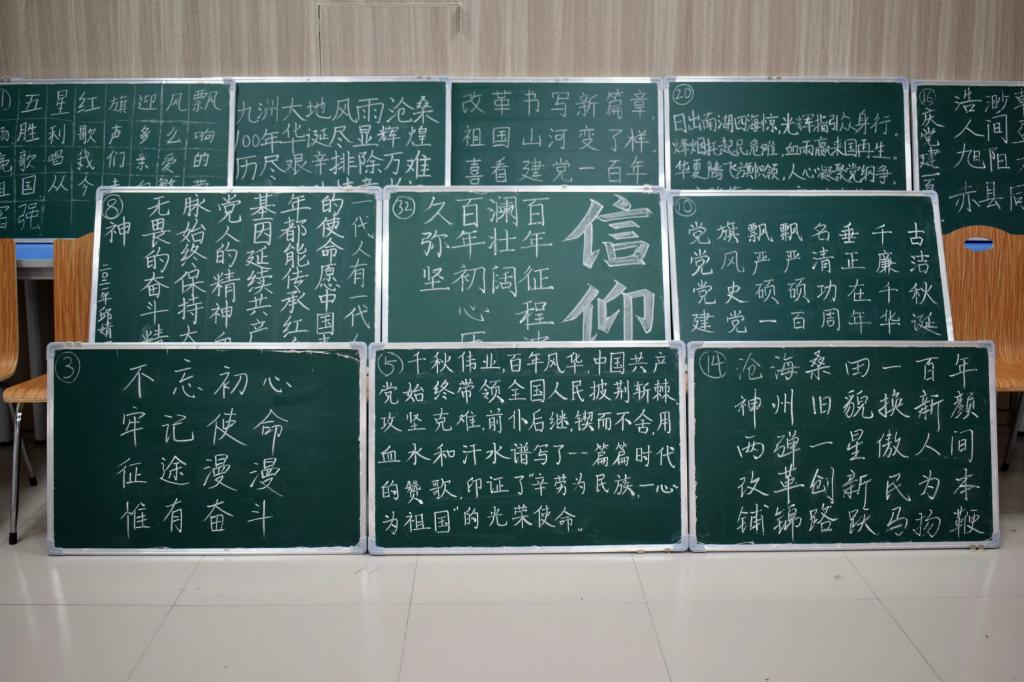 ①五星红旗迎风飘
扬胜利歌声多么响
亮歌唱我们亲爱的
祖国从今
富强
九洲大地风雨沧桑
100年华诞尽显辉煌
历尽艰辛排除万难
改革书写新篇章
祖国山河变了样
喜看建党一百年
⑳
日出南湖四海惊,光辉指引众身行。
烽烟托起民危难,血雨赢来国再生。
华夏腾飞
人心凝聚党纲争。
⑯
庆党建
浩渺
人间
旭阳
赤县同
⑧
一代人有一代
的使命愿中国
年都能传承红
基因延续共产
党人的精神血
脉始终保持大
无畏的奋斗精
神
二〇二一年邱婧
㉜
信仰
百年征程波
澜壮阔
百年初心历
久弥坚
⑩
党旗飘飘名垂千古
党风严严清正廉洁
党史硕硕功在千秋
建党一百周年华诞
③
不忘初心
牢记使命
征途漫漫
惟有奋斗
⑤千秋伟业,百年风华,中国共产
党始终带领全国人民披荆斩棘
攻坚克难,前仆后继,锲而不舍,用
血水和汗水谱写了一篇篇时代
的赞歌,印证了辛劳为民族,一心
为祖国”的光荣使命。
⑭沧海桑田一百年
神州旧貌换新颜
两弹一星傲人间
改革创新民为本
铺锦路跃马扬鞭